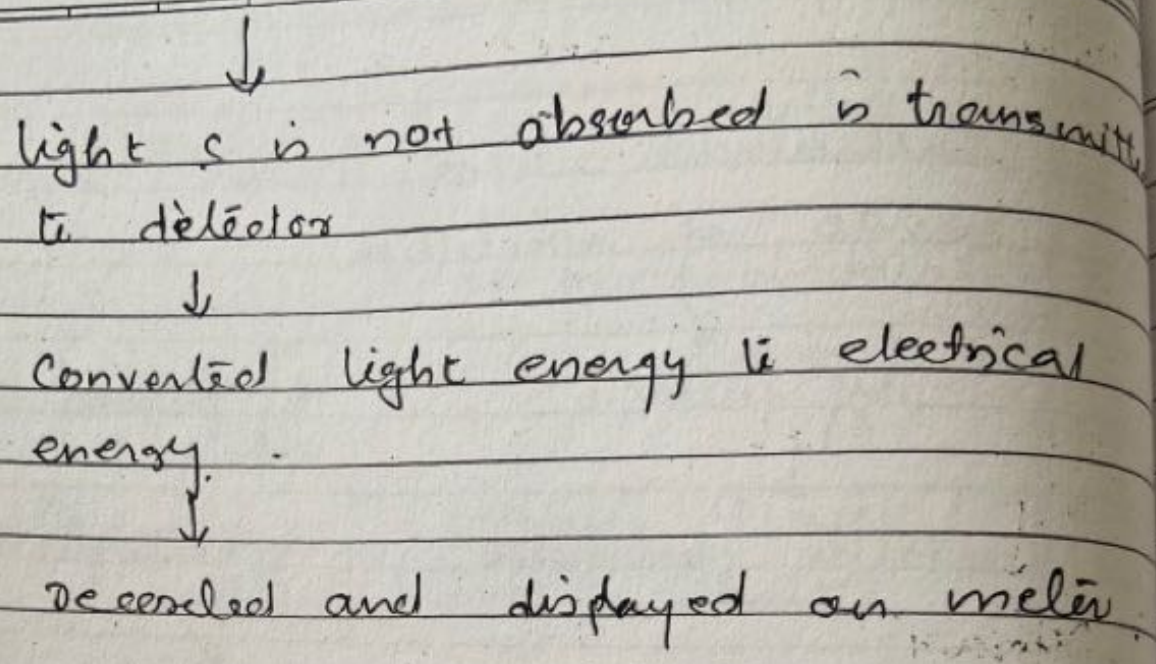 ↓
light c is not absorbed is transmitt
to detector
↓
Converted light energy to electrical
energy.
↓
Recorded and displayed on meter